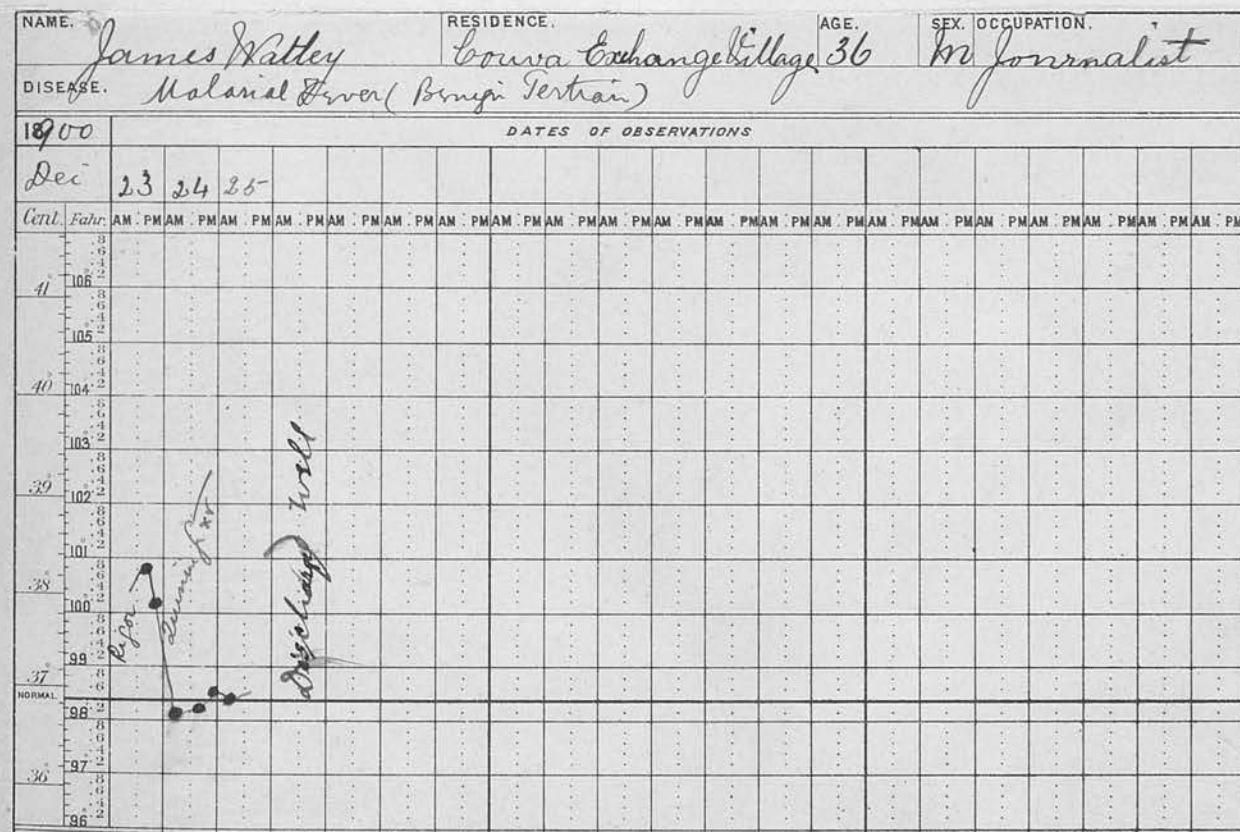 NAME. RESIDENCE. AGE. SEX. OCCUPATION.
James Watley Couva Exchange Village 36 M Journalist
DISEASE. Malarial Fever (Benign Tertian)
1900 DATES OF OBSERVATIONS
Dec 23 24 25
Cent. Fahr. AM PM AM PM AM PM AM PM AM PM AM PM AM PM AM PM AM PM AM PM AM PM AM PM AM PM AM PM AM PM AM PM AM PM AM PM AM PM AM PM AM PM
41° 106°
105°
40° 104°
103°
39° 102°
101°
38° 100°
99
37°
NORMAL.
98
97
36°
96
Rigor
Quinine gr xv
Discharged well